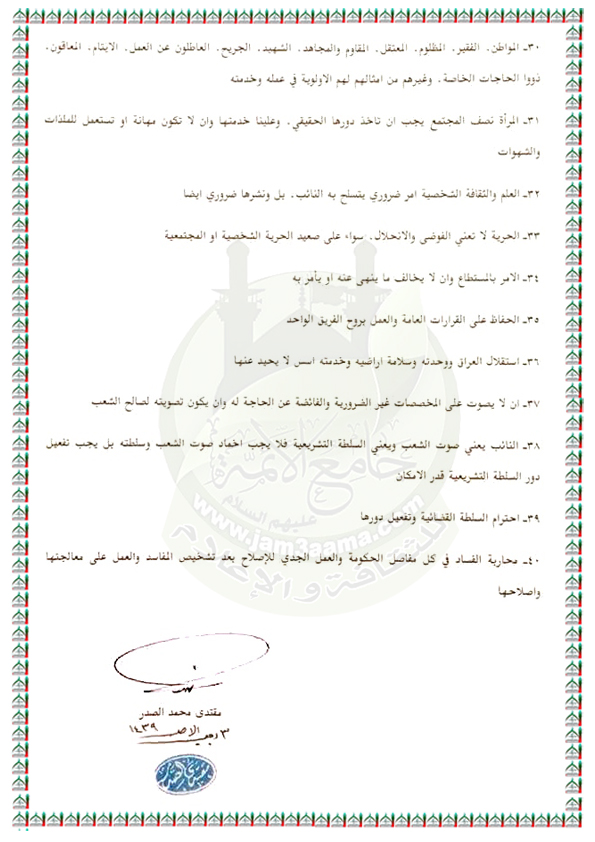 ٣٠ـ المواطن، الفقير، المظلوم، المعتقل، المقاوم والمجاهد، الشهيد، الجريح، العاطلون عن العمل، الايتام، المعاقون،
ذووا الحاجات الخاصة، وغيرهم من امثالهم لهم الاولوية في عمله وخدمته
٣١ـ المرأة نصف المجتمع يجب ان تاخذ دورها الحقيقي، وعلينا خدمتها وان لا تكون مهانة او تستعمل للملذات
والشهوات
٣٢ـ العلم والثقافة الشخصية امر ضروري يتسلح به النائب، بل ونشرها ضروري ايضا
٣٣ـ الحرية لا تعني الفوضى والانحلال، سواء على صعيد الحرية الشخصية او المجتمعية
٣٤ـ الامر بالمستطاع وان لا يخالف ما ينهى عنه او يأمر به
٣٥ـ الحفاظ على القرارات العامة والعمل بروح الفريق الواحد
٣٦ـ استقلال العراق ووحدته وسلامة اراضيه وخدمته اسس لا يحيد عنها
٣٧ـ ان لا يصوت على المخصصات غير الضرورية والفائضة عن الحاجة له وان يكون تصويته لصالح الشعب
٣٨ـ النائب يعني صوت الشعب ويعني السلطة التشريعية فلا يجب اخماد صوت الشعب وسلطته بل يجب تفعيل
دور السلطة التشريعية قدر الامكان
٣٩ـ احترام السلطة القضائية وتفعيل دورها
٤٠ـ محاربة الفساد في كل مفاصل الحكومة والعمل الجدي للإصلاح بعد تشخيص المفاسد والعمل على معالجتها
واصلاحها
جامع الأئمة
عليهم السلام
www.jam3aama.com
للثقافة والإعلام
مقتدى محمد الصدر
٣ رجب الاصب ١٤٣٩
مقتدى الصدر